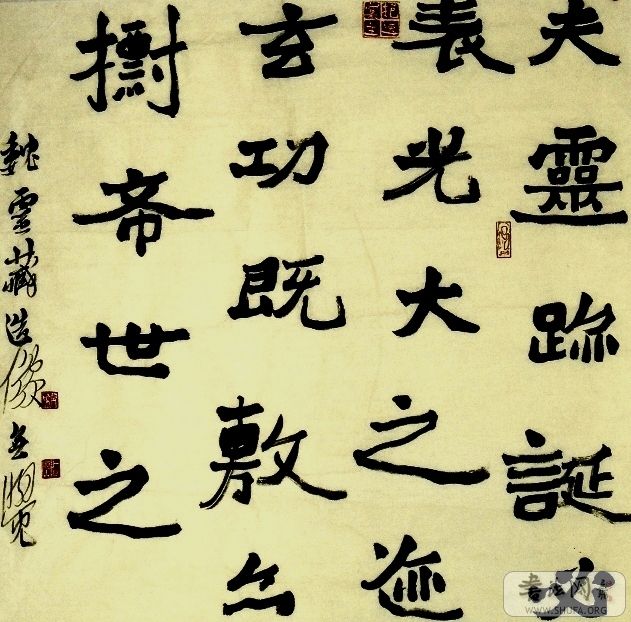 夫靈跡誕
表光大之迹
玄功既敷亦
希世之
魏靈藏造像
书法网
WWW.SHUFA.ORG